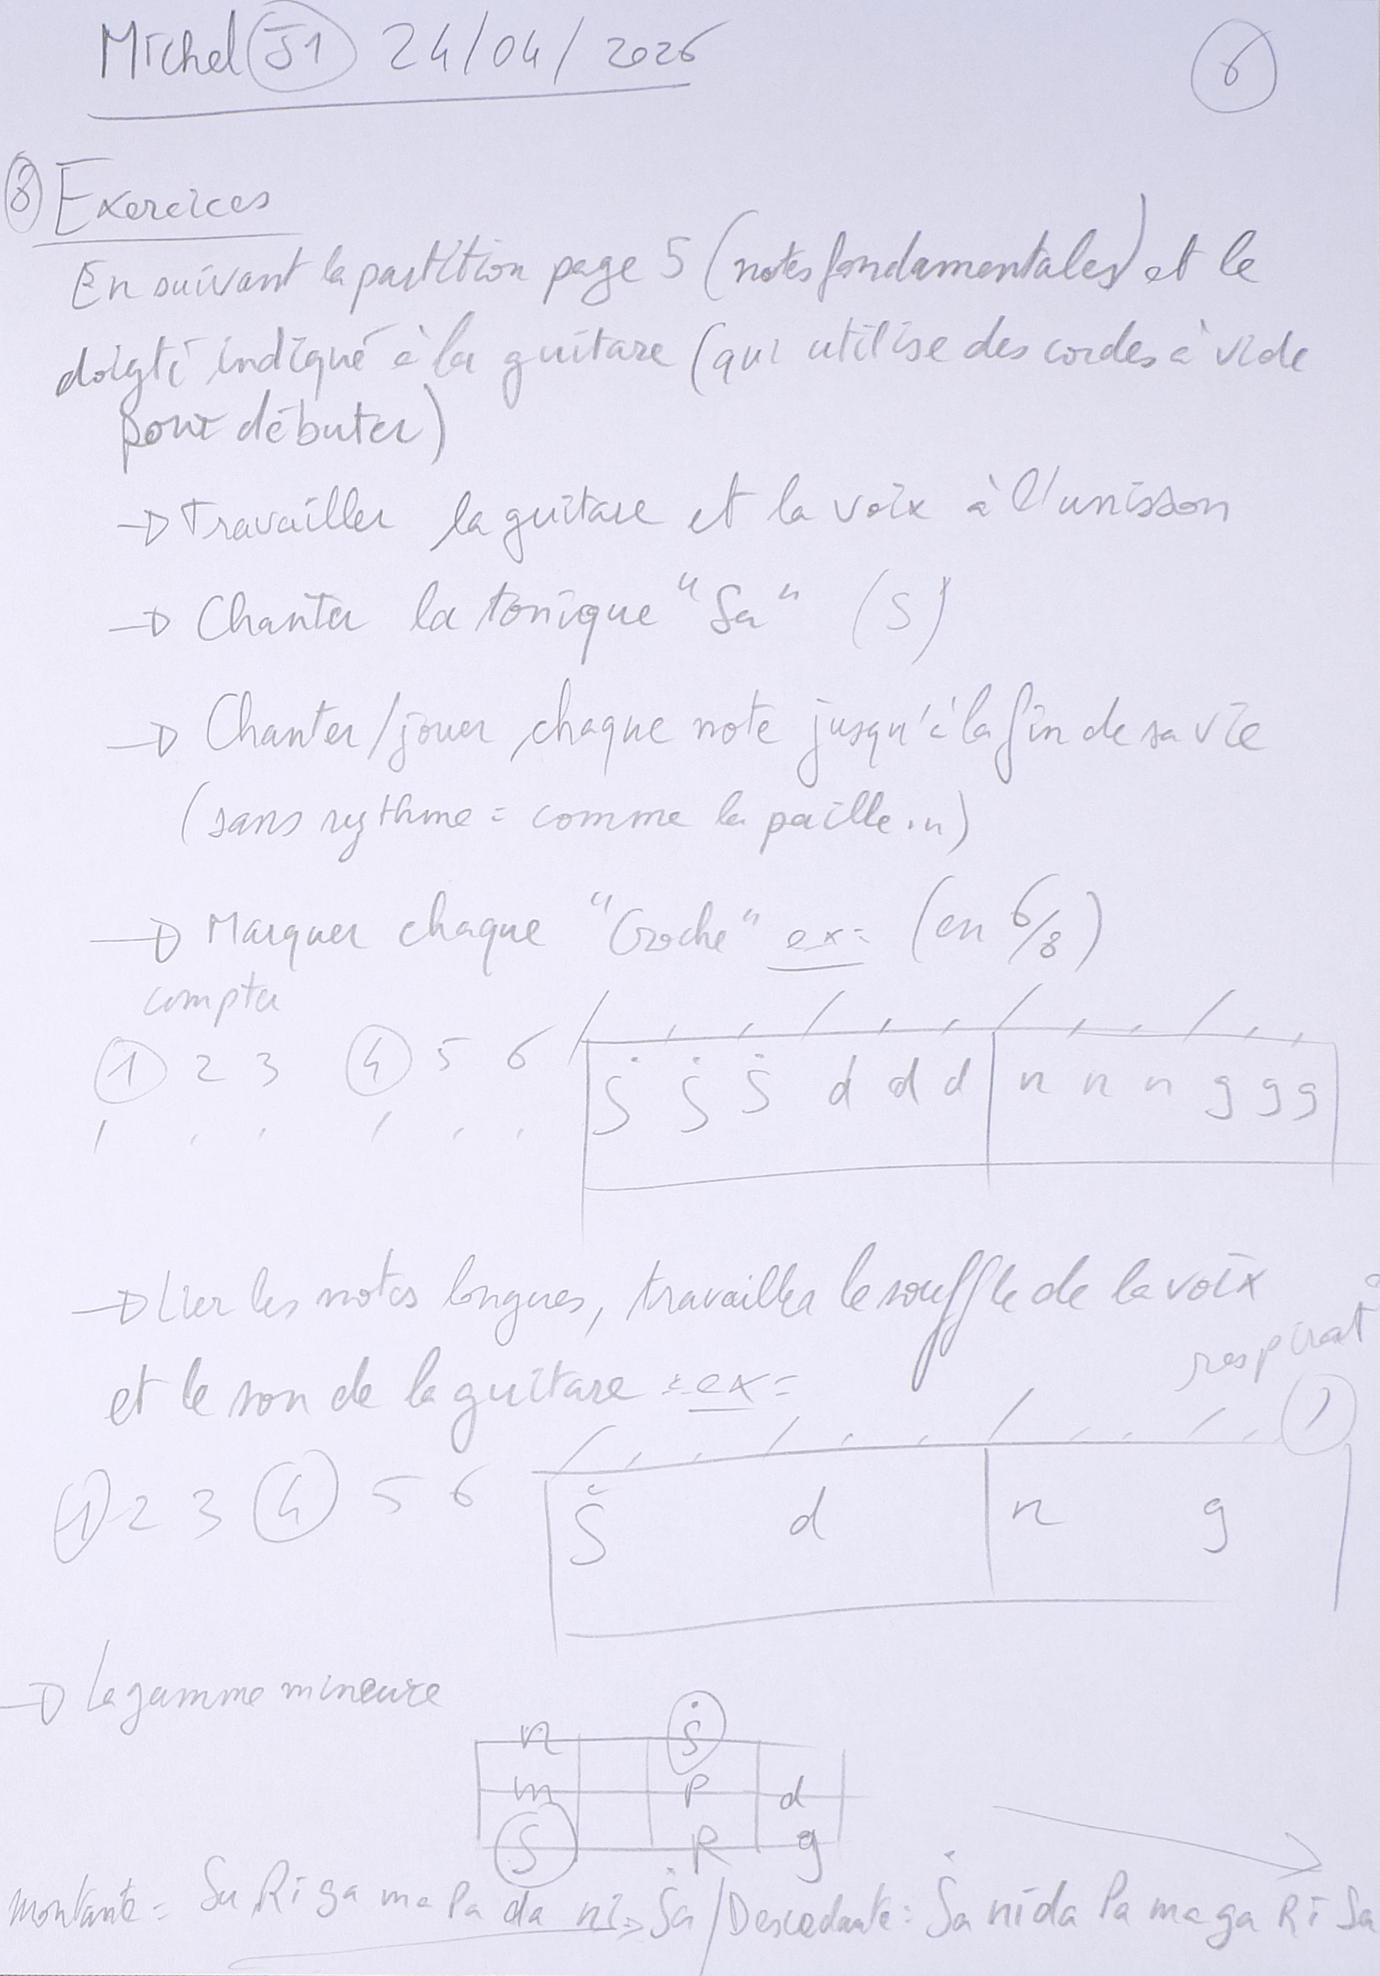 Michel S1 24/04/2026
6
8 Exercices
En suivant la partition page 5 (notes fondamentales) et le
doigté indiqué à la guitare (qui utilise des cordes à vide
pour débuter)
→ Travailler la guitare et la voix à l'unisson
→ Chanter la tonique "Sa" (S)
→ Chanter/jouer chaque note jusqu'à la fin de sa vie
(sans rythme = comme la paille...)
→ Marquer chaque "Croche" ex = (en 6/8)
compter
1 2 3 4 5 6
Ṡ Ṡ Ṡ d d d | n n n g g g
→ Lier les notes longues, travailler le souffle de la voix
et le son de la guitare : ex =
respirat°
1 2 3 4 5 6
Ṡ d | n g
→ La gamme mineure
n Ṡ
m P d
S R g
montante = Sa Ri ga ma Pa da ni Ṡa / Descedante : Ṡa ni da Pa ma ga Ri Sa